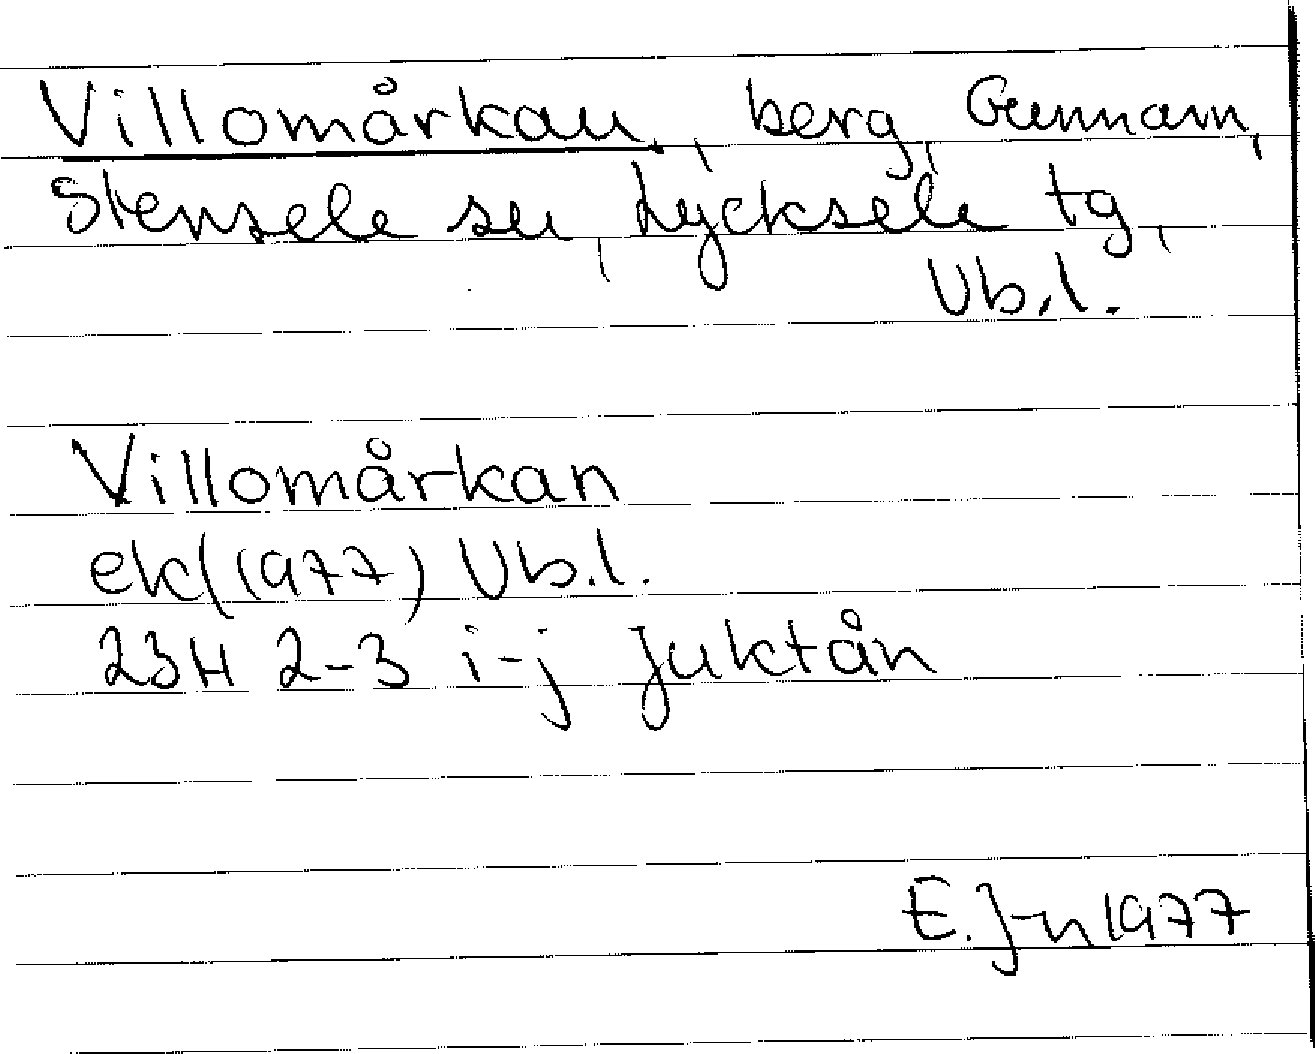 Villomårkan, berg, Gunnarn,
Stensele sn, Lycksele tg,
Vb.l.
Villomårkan
ek(1977) Vb.l.
23H 2-3 i-j Juktån
E.J-n 1977